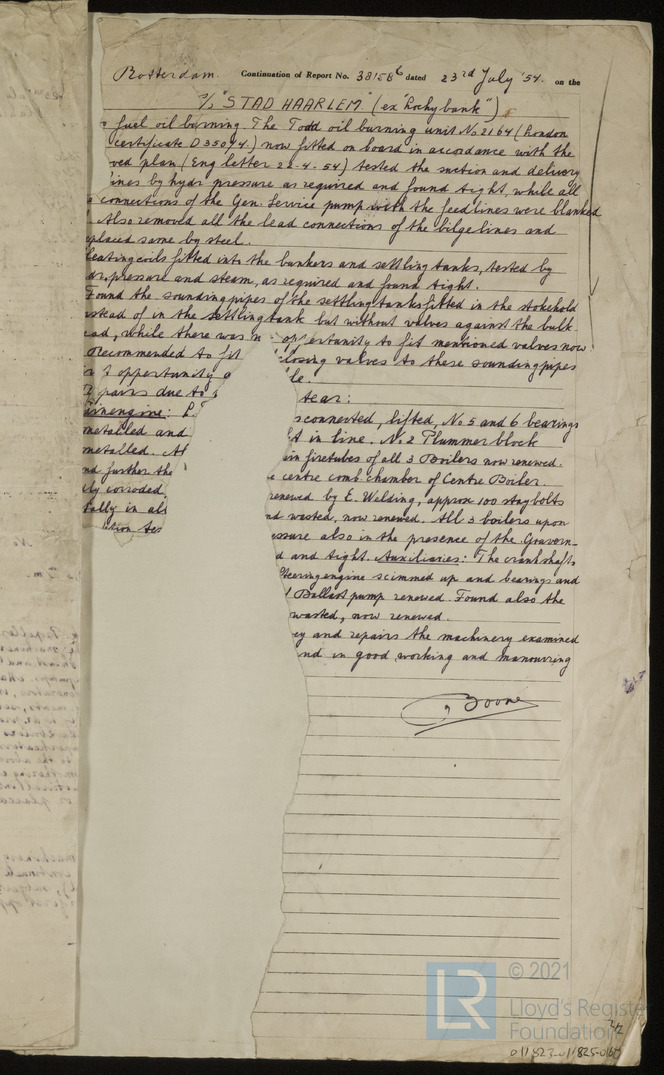 Rotterdam. Continuation of Report No. 38158⁶ dated 23rd July '54. on the
S/S "STAD HAARLEM" (ex "Rockybank").
fuel oil burning. The Todd oil burning unit No. 2164 (London
certificate D35094.) now fitted on board in accordance with the
ved plan (Eng letter 22-4-54) tested the suction and delivery
ines by hydr pressure as required and found tight, while all
connections of the Gen. Service pump with the feed lines were blanked
Also removed all the lead connections of the bilge lines and
eplaced same by steel.
Heating coils fitted into the bunkers and settling tanks, tested by
dr. pressure and steam, as required and found tight.
Found the sounding pipes of the settling tanks fitted in the stokehold
nstead of in the settling tank but without valves against the bulk-
ead, while there was n opportunity to fit mentioned valves now
Recommended to fit closing valves to these sounding pipes
opportunity le.
pairs due to tear:
ainengine: sconnected, lifted, No 5 and 6 bearings
metalled and t in line. No 2 Plummer block
ometalled. Al ain firetubes of all 3 Boilers now renewed.
nd further the e centre comb chamber of Centre Boiler.
ly corroded, renewed by E. Welding, approx 100 staybolts
tally in al nd wasted, now renewed. All 3 boilers upon
ction tes essure also in the presence of the Govern-
d and tight. Auxiliaries: The crankshafts
Steering engine scimmed up and bearings and
Ballast pump renewed. Found also the
wasted, now renewed.
ey and repairs the machinery examined
nd in good working and manouvring
Boone
LR © 2021
Lloyd's Register
Foundation
2/2
011823-011825-0164